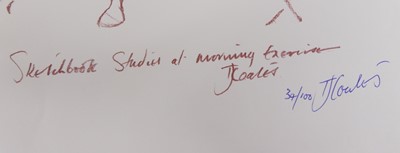 Sketchbook Studies at morning Exercise
TJCoates
32/100 TJCoates